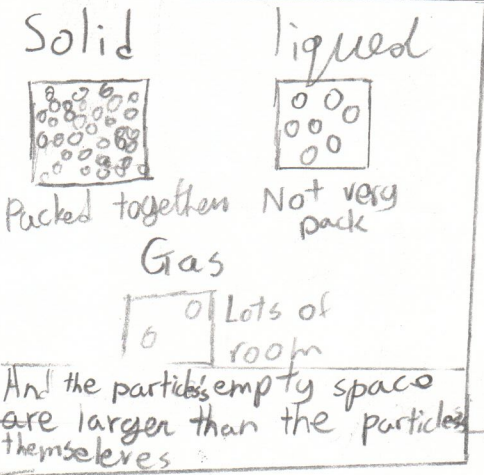 Solid
liqued
Packed together
Not very
pack
Gas
Lots of
room
And the particles's empty space
are larger than the particless
themseleves